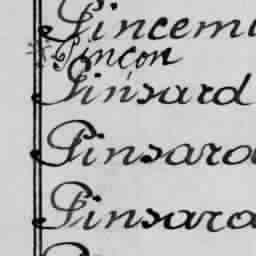 Pincemi
* Pinçon
Pinsard
Pinsard
Pinsard